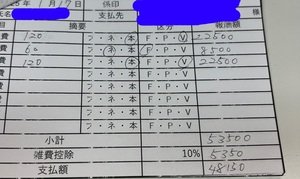 年 1月17日 係印
氏名 支払先 様
目 摘要 区分 報酬額
費 120 ・ネ・本 F・P・V 22500
費 60 ・ネ・本 F・P・V 8500
費 120 ・ネ・本 F・P・V 22500
・ネ・本 F・P・V
・ネ・本 F・P・V
・ネ・本 F・P・V
小計 53500
雑費控除 10% 5350
支払額 48150